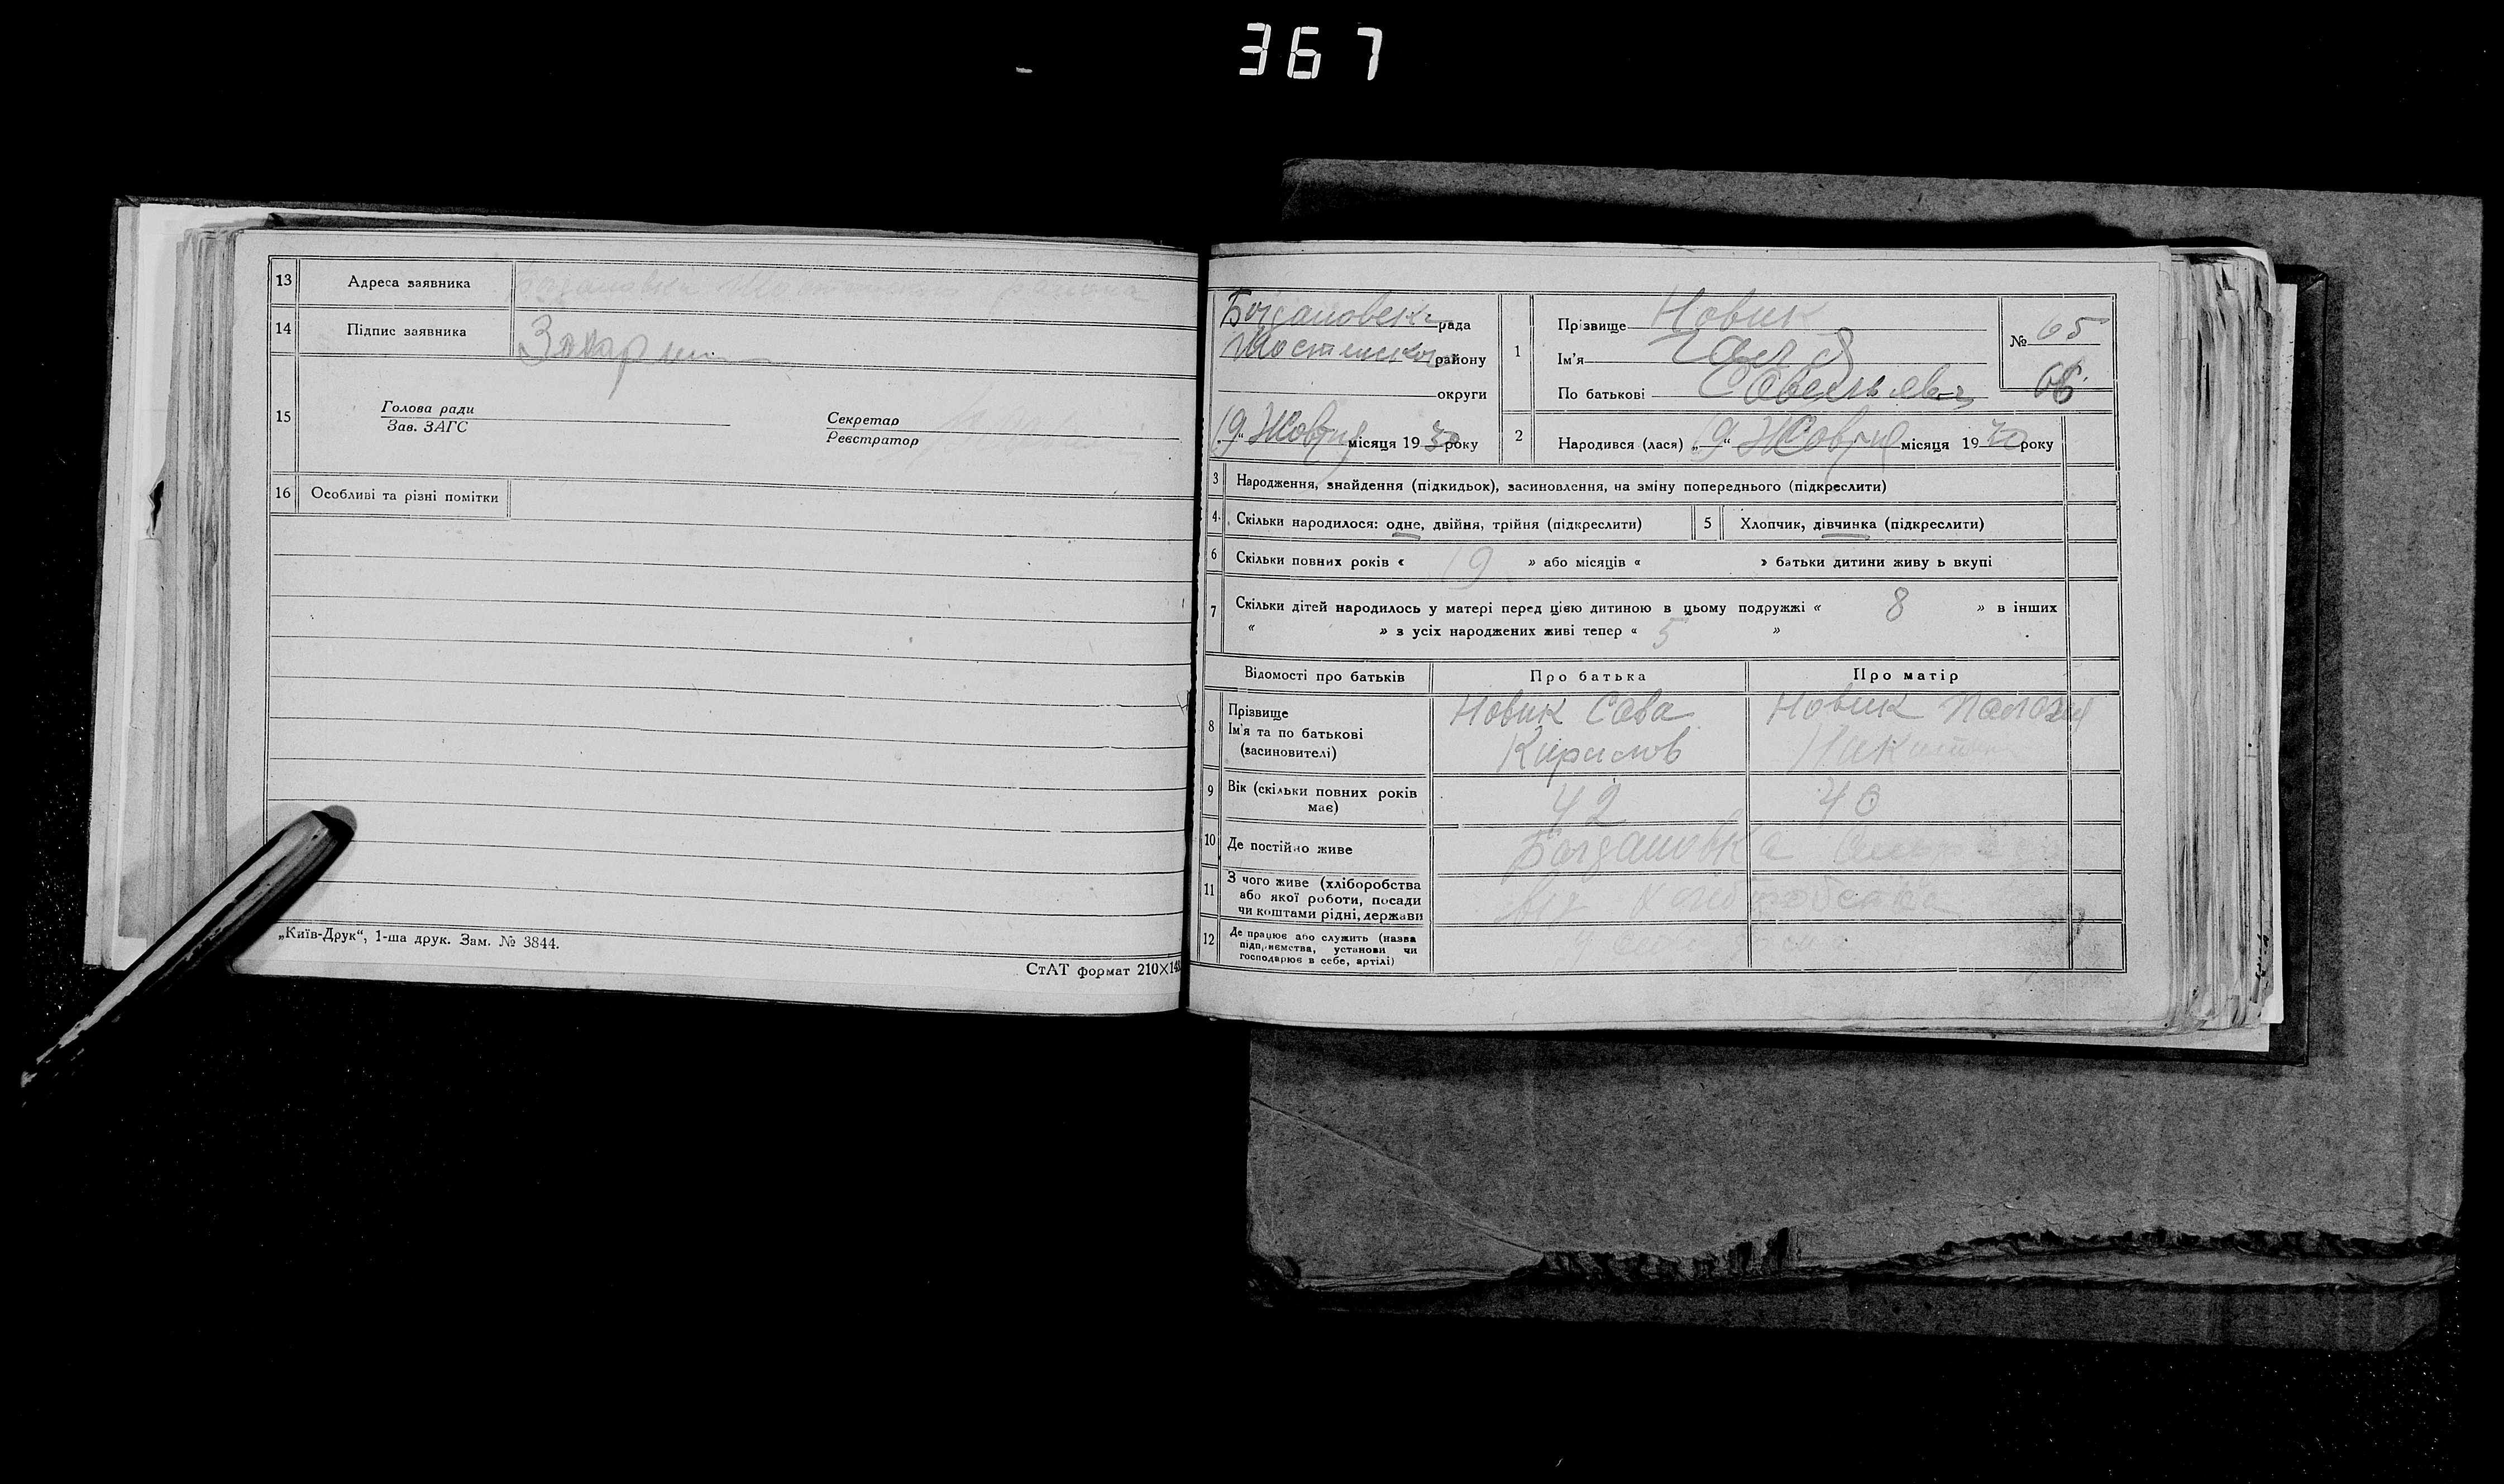 367
13 Адреса заявника Богдановка
14 Підпис заявника
15 Голова ради
Зав. ЗАГС
Секретар
Реєстратор
16 Особливі та різні помітки
„Київ-Друк“, 1-ша друк. Зам. № 3844.
СтАТ формат 210×148
Богдановська рада
Шостенского району
округи
„9“ Жовтня місяця 1930 року
1 Прізвище Новик
Ім'я
По батькові Савельевна
№ 65
66
2 Народився (лася) „9“ Жовтня місяця 1930 року
3 Народження, знайдення (підкидьок), засиновлення, на зміну попереднього (підкреслити)
4. Скільки народилося: одне, двійня, трійня (підкреслити)
5 Хлопчик, дівчинка (підкреслити)
6 Скільки повних років « 19 » або місяців « » батьки дитини живу ь вкупі
7 Скільки дітей народилось у матері перед цією дитиною в цьому подружжі « 8 » в інших
« » з усіх народжених живі тепер « 5 »
Відомості про батьків
Про батька
Про матір
8 Прізвище
Ім'я та по батькові
(засиновителі)
Новик Сава
Кирилов
Новик Палазея
9 Вік (скільки повних років
має)
42
40
10 Де постійно живе Богдановка
11 З чого живе (хліборобства
або якої роботи, посади
чи коштами рідні, держави
12 Де працює або служить (назва
підприємства, установи чи
господарює в себе, артілі)